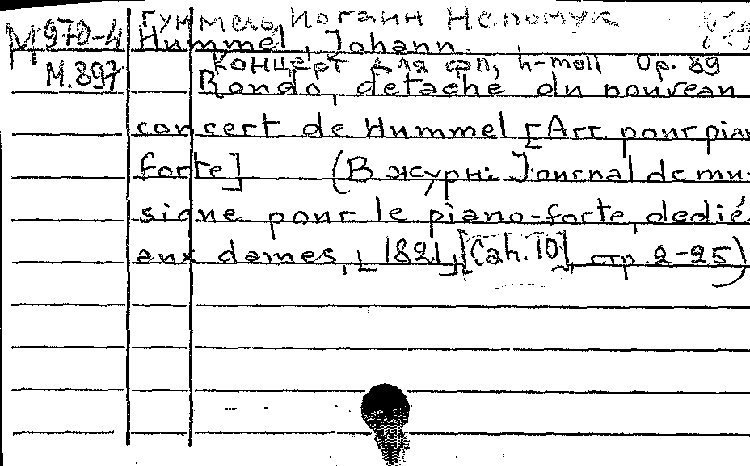 Гуммель Иоганн Непомук
М 970-4 Hummel, Johann.
концерт для фп, h-moll Op. 89
М.897 Rondo, detaché du nouveau
concert de Hummel [Arr. pour pian
forte] (В журн: Journal de mu-
sique pour le piano-forte, dedié
aux dames, [1821], [Cah. 10], стр. 2-25)